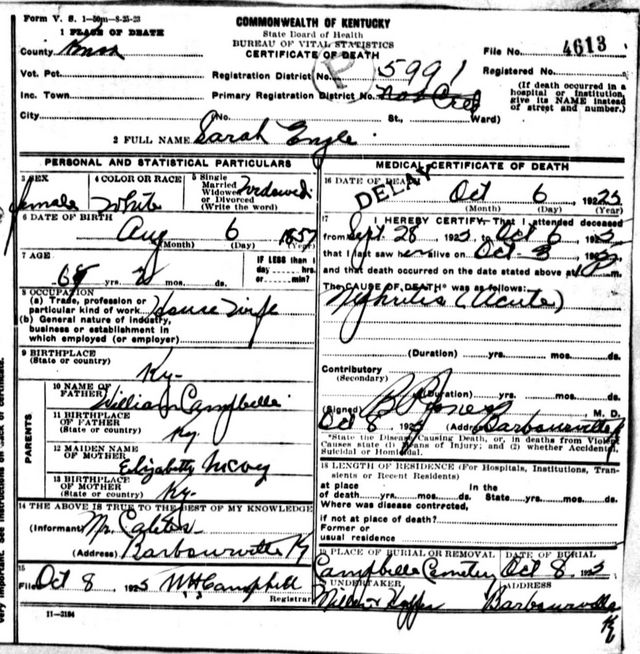 Form V. S. 1-50m-8-25-23
COMMONWEALTH OF KENTUCKY
State Board of Health
BUREAU OF VITAL STATISTICS
CERTIFICATE OF DEATH
1 PLACE OF DEATH
County Knox
File No. 4613
Vot. Pct.
Registration District No. 5991
Registered No.
Inc. Town
Primary Registration District No.
(If death occurred in a hospital or institution, give its NAME instead of street and number.)
City
(No. St., Ward)
2 FULL NAME Sarah Engle
PERSONAL AND STATISTICAL PARTICULARS
3 SEX
female
4 COLOR OR RACE
White
5 Single
Married
Widowed
or Divorced
(Write the word)
Widowed
6 DATE OF BIRTH
Aug 6 1857
(Month) (Day) (Year)
7 AGE
68 yrs. 2 mos. ds.
IF LESS than 1
day hrs.
or min.?
8 OCCUPATION
(a) Trade, profession or
particular kind of work House Wife
(b) General nature of industry,
business or establishment in
which employed (or employer)
9 BIRTHPLACE
(State or country) Ky-
PARENTS
10 NAME OF
FATHER William Campbell
11 BIRTHPLACE
OF FATHER
(State or country) Ky
12 MAIDEN NAME
OF MOTHER Elizabeth McCoy
13 BIRTHPLACE
OF MOTHER
(State or country) Ky-
14 THE ABOVE IS TRUE TO THE BEST OF MY KNOWLEDGE
(Informant) Mr.
(Address) Barbourville Ky
15
Filed Oct 8, 1925 WH Campbell
Registrar
11-3184
MEDICAL CERTIFICATE OF DEATH
DELAY
16 DATE OF DEATH Oct 6 1925
(Month) (Day) (Year)
17 I HEREBY CERTIFY, That I attended deceased
from Sept 28 1925 to Oct 6 1925
that I last saw her alive on Oct-3 192
and that death occurred on the date stated above at M.
The CAUSE OF DEATH* was as follows:
Nephritis (Acute)
(Duration) yrs. mos. ds.
Contributory
(Secondary)
(Duration) yrs. mos. ds.
(Signed) Jones M. D.
Oct 8, 1925 (Address) Barbourville
*State the Disease Causing Death, or, in deaths from Violent
Causes state (1) Means of Injury; and (2) whether Accidental,
Suicidal or Homicidal.
18 LENGTH OF RESIDENCE (For Hospitals, Institutions, Tran-
sients or Recent Residents)
at place In the
of death yrs. mos. ds. State yrs. mos. ds.
Where was disease contracted,
if not at place of death?
Former or
usual residence
19 PLACE OF BURIAL OR REMOVAL DATE OF BURIAL
Campbells Cemetery Oct 8, 1925
UNDERTAKER ADDRESS
Barbourville
Ky